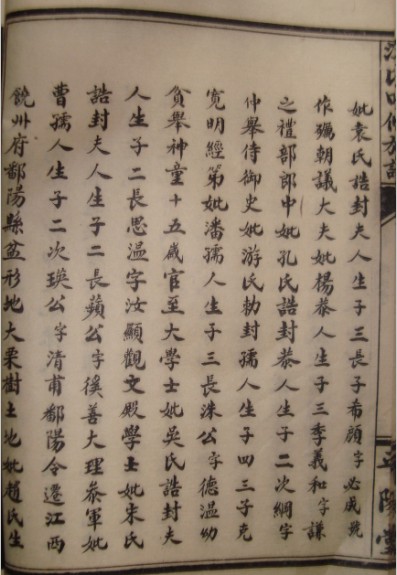 妣袁氏誥封夫人生子三長子希顔字必威號
作獮朝議大夫妣楊恭人生子三季義和字謙
之禮部郎中妣孔氏誥封恭人生子二次綱字
仲舉侍御史妣游氏勅封孺人生子四三子克
寬明經第妣潘孺人生子三長洙公字德温幼
貧舉神童十五歲官至大學士妣吳氏誥封夫
人生子二長思温字汝顯觀文殿學士妣朱氏
誥封夫人生子二長蘋公字徯善大理叅軍妣
曹孺人生子二次瑛公字清甫鄱陽令遷江西
饒州府鄱陽縣盆形地大栗樹土地妣趙氏生
平陽堂